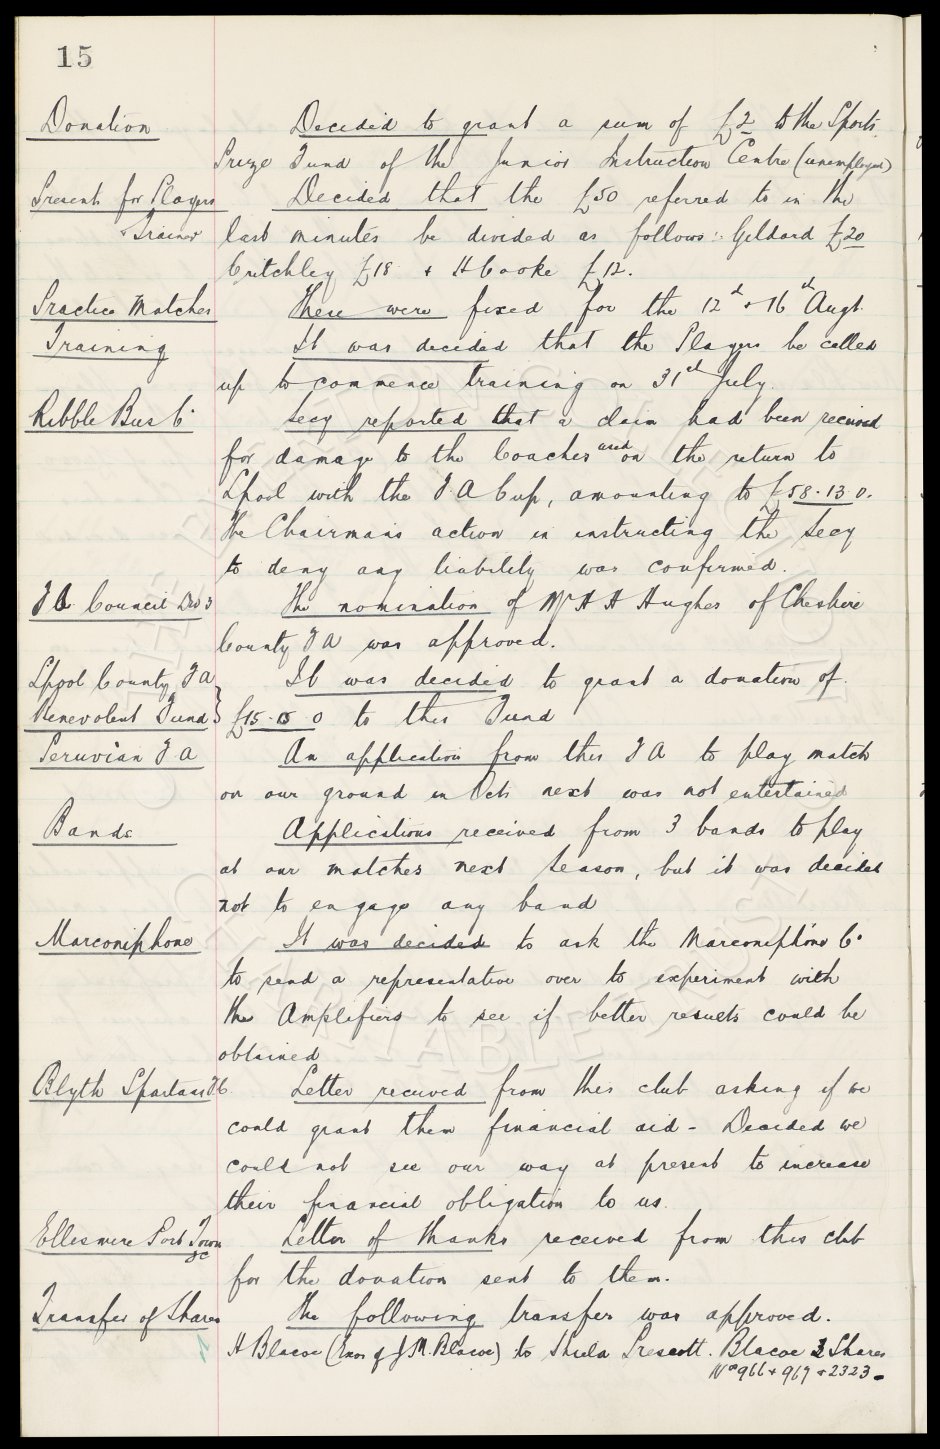 15
Donation Decided to grant a sum of £2 to the Sports
Prize Fund of the Junior Instruction Centre (unemployed)
Presents for Players Decided that the £50 referred to in the
& Trainer last minutes be divided as follows:- Geldard £20
Critchley £18 & H Cooke £12.
Practice Matches These were fixed for the 12th & 16th Augt.
Training It was decided that the Players be called
up to commence training on 31st July.
Ribble Bus Co Secy reported that a claim had been received
for damage to the Coaches used on the return to
Lpool with the F A Cup, amounting to £58.13.0.
The Chairmans action in instructing the Secy
to deny any liability was confirmed.
F A Council Div 3 The nomination of Mr H H Hughes of Cheshire
County F A was approved.
Lpool County F A It was decided to grant a donation of
Benevolent Fund £15.15.0 to this Fund
Peruvian F A An application from this F A to play match
on our ground in Octr next was not entertained
Bands Applications received from 3 bands to play
at our matches next season, but it was decided
not to engage any band
Marconiphone It was decided to ask the Marconiphone Co
to send a representative over to experiment with
the Amplifiers to see if better results could be
obtained
Blyth Spartans FC Letter received from this club asking if we
could grant them financial aid - Decided we
could not see our way at present to increase
their financial obligation to us.
Ellesmere Port Town FC Letter of thanks received from this club
for the donation sent to them.
Transfer of Shares The following transfer was approved.
H Blacoe (Exor of J. M. Blacoe) to Shiela Prescott. Blacoe 3 Shares
Nos 966 & 967 & 2323